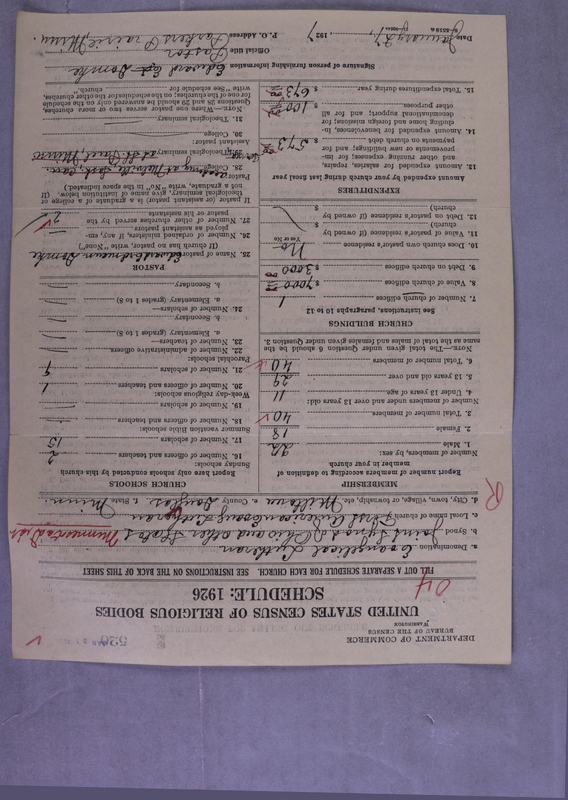 DEPARTMENT OF COMMERCE
BUREAU OF THE CENSUS
WASHINGTON
UNITED STATES CENSUS OF RELIGIOUS BODIES
SCHEDULE: 1926
FILL OUT A SEPARATE SCHEDULE FOR EACH CHURCH. SEE INSTRUCTIONS ON THE BACK OF THIS SHEET
a. Denomination Evangelical Lutheran
b. Synod Joint Synod of Ohio and other States
c. Local name of church First American Evang. Lutheran
d. City, town, village, or township, etc. Millona e. County Douglas f. State Minn.
MEMBERSHIP
Report number of members according to definition of member in your church
Number of members, by sex:
1. Male 22
2. Female 18
3. Total number of members 40
Number of members under and over 13 years old:
4. Under 13 years of age 11
5. 13 years old and over 29
6. Total number of members 40
NOTE.—The total given under Question 6 should be the same as the total of males and females given under Question 3.
CHURCH BUILDINGS
See instructions, paragraphs 10 to 12
7. Number of church edifices 1
8. Value of church edifices $ 7000
9. Debt on church edifices $ 3000
10. Does church own pastor's residence No
Yes or No
11. Value of pastor's residence (if owned by church) $
12. Debt on pastor's residence (if owned by church) $
EXPENDITURES
Amount expended by your church during last fiscal year
13. Amount expended for salaries, repairs, and other running expenses; for improvements or new buildings; and for payments on church debt $ 573
14. Amount expended for benevolences, including home and foreign missions; for denominational support; and for all other purposes $ 100
15. Total expenditures during year $ 673
CHURCH SCHOOLS
Report here only schools conducted by this church
Sunday schools:
16. Number of officers and teachers 2
17. Number of scholars 15
Summer vacation Bible schools:
18. Number of officers and teachers
19. Number of scholars
Week-day religious schools:
20. Number of officers and teachers 1
21. Number of scholars
Parochial schools:
22. Number of administrative officers
23. Number of teachers—
a. Elementary (grades 1 to 8)
b. Secondary
24. Number of scholars—
a. Elementary (grades 1 to 8)
b. Secondary
PASTOR
25. Name of pastor Edward Domke
(If church has no pastor, write "None")
26. Number of ordained ministers, if any, employed as assistant pastors
27. Number of other churches served by the pastor or his assistants 2
If pastor (or assistant pastor) is a graduate of a college or theological seminary, give name of institution below. (If not a graduate, write "No" in the space indicated.)
Pastor:
28. College
29. Theological seminary at St. Paul, Minn
Assistant pastor:
30. College
31. Theological seminary
NOTE.—Where one pastor serves two or more churches, Questions 28 and 29 should be answered only on the schedule for one of the churches; on the schedule for the other churches, write "See schedule for church."
Signature of person furnishing information Edward Domke
Official title Pastor
P. O. Address Parkers Prairie, Minn.
Date January 27, 1927